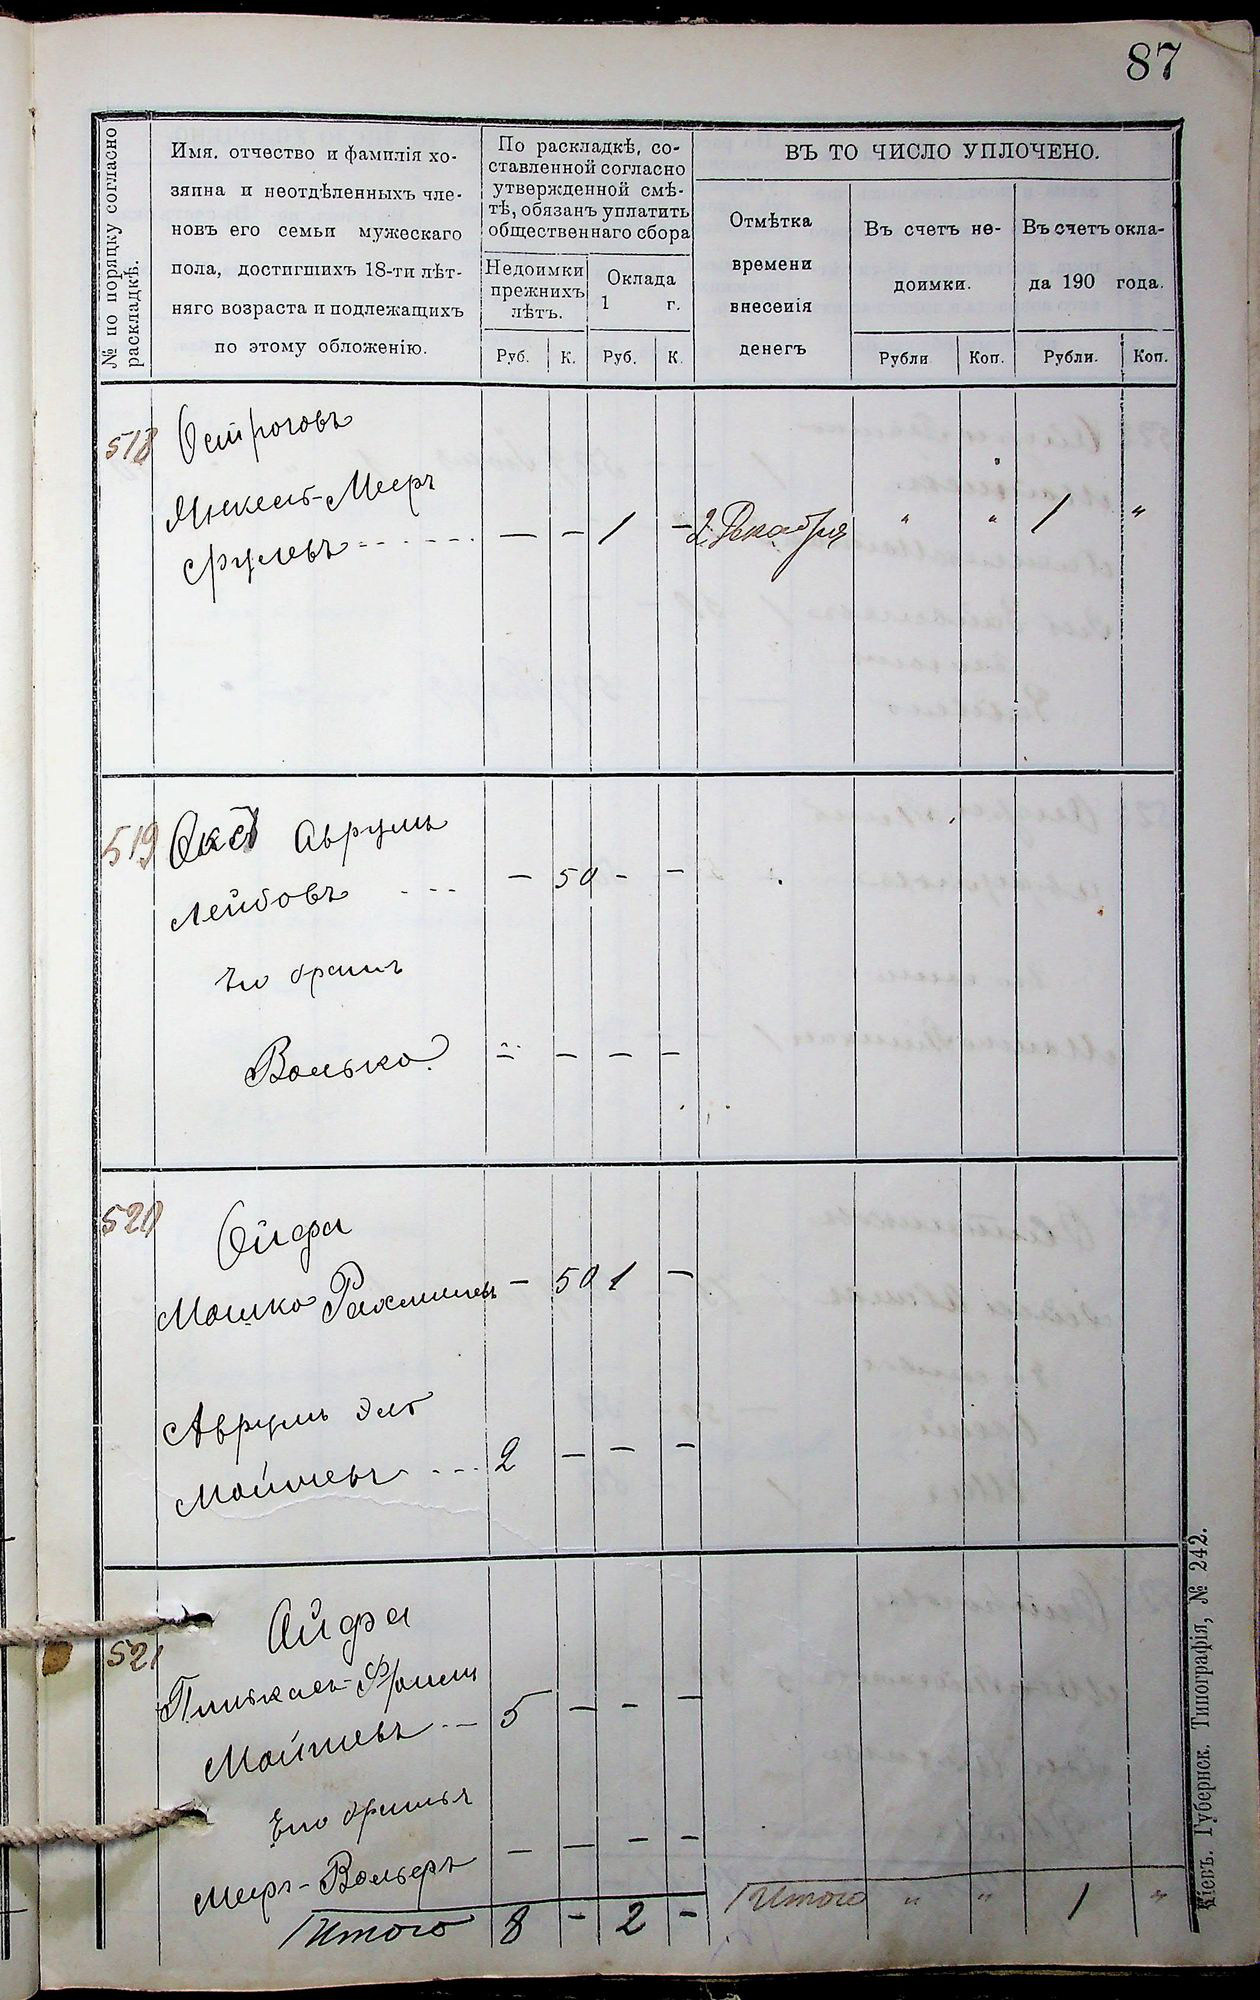 87
№ по поряцку согласно раскладкѣ.
Имя, отчество и фамилія хо-
зяина и неотдѣленныхъ чле-
новъ его семьи мужескаго
пола, достигшихъ 18-ти лѣт-
няго возраста и подлежащихъ
по этому обложенію.
По раскладкѣ, со-
ставленной согласно
утвержденной смѣ-
тѣ, обязанъ уплатить
общественнаго сбора
Недоимки
прежнихъ
лѣтъ.
Оклада
1 г.
Руб. К. Руб. К.
ВЪ ТО ЧИСЛО УПЛОЧЕНО.
Отмѣтка
времени
внесенія
денегъ
Въ счетъ не-
доимки.
Въ счетъ окла-
да 190 года.
Рубли Коп. Рубли. Коп.
518 Остроговъ
Янкель-Мееръ
Срулевъ - - - - - — - 1 - 2 Декабря " " 1 "
519 Оксъ Аврумъ
Лейбовъ - - - - 50 - -
Его братъ
Волько. - - - -
520 Ойфа
Мошко Рахмилевъ - 50 1 -
Аврумъ Эль
Мойшевъ - - - 2 - - -
521 Айфа
Пинькасъ-Фроим
Мойшевъ - - 5 - - -
Его братья
Мееръ-Вольфъ - - - -
Итого 8 - 2 - Итого " " 1 "
Кіевъ. Губернск. Типографія, № 242.